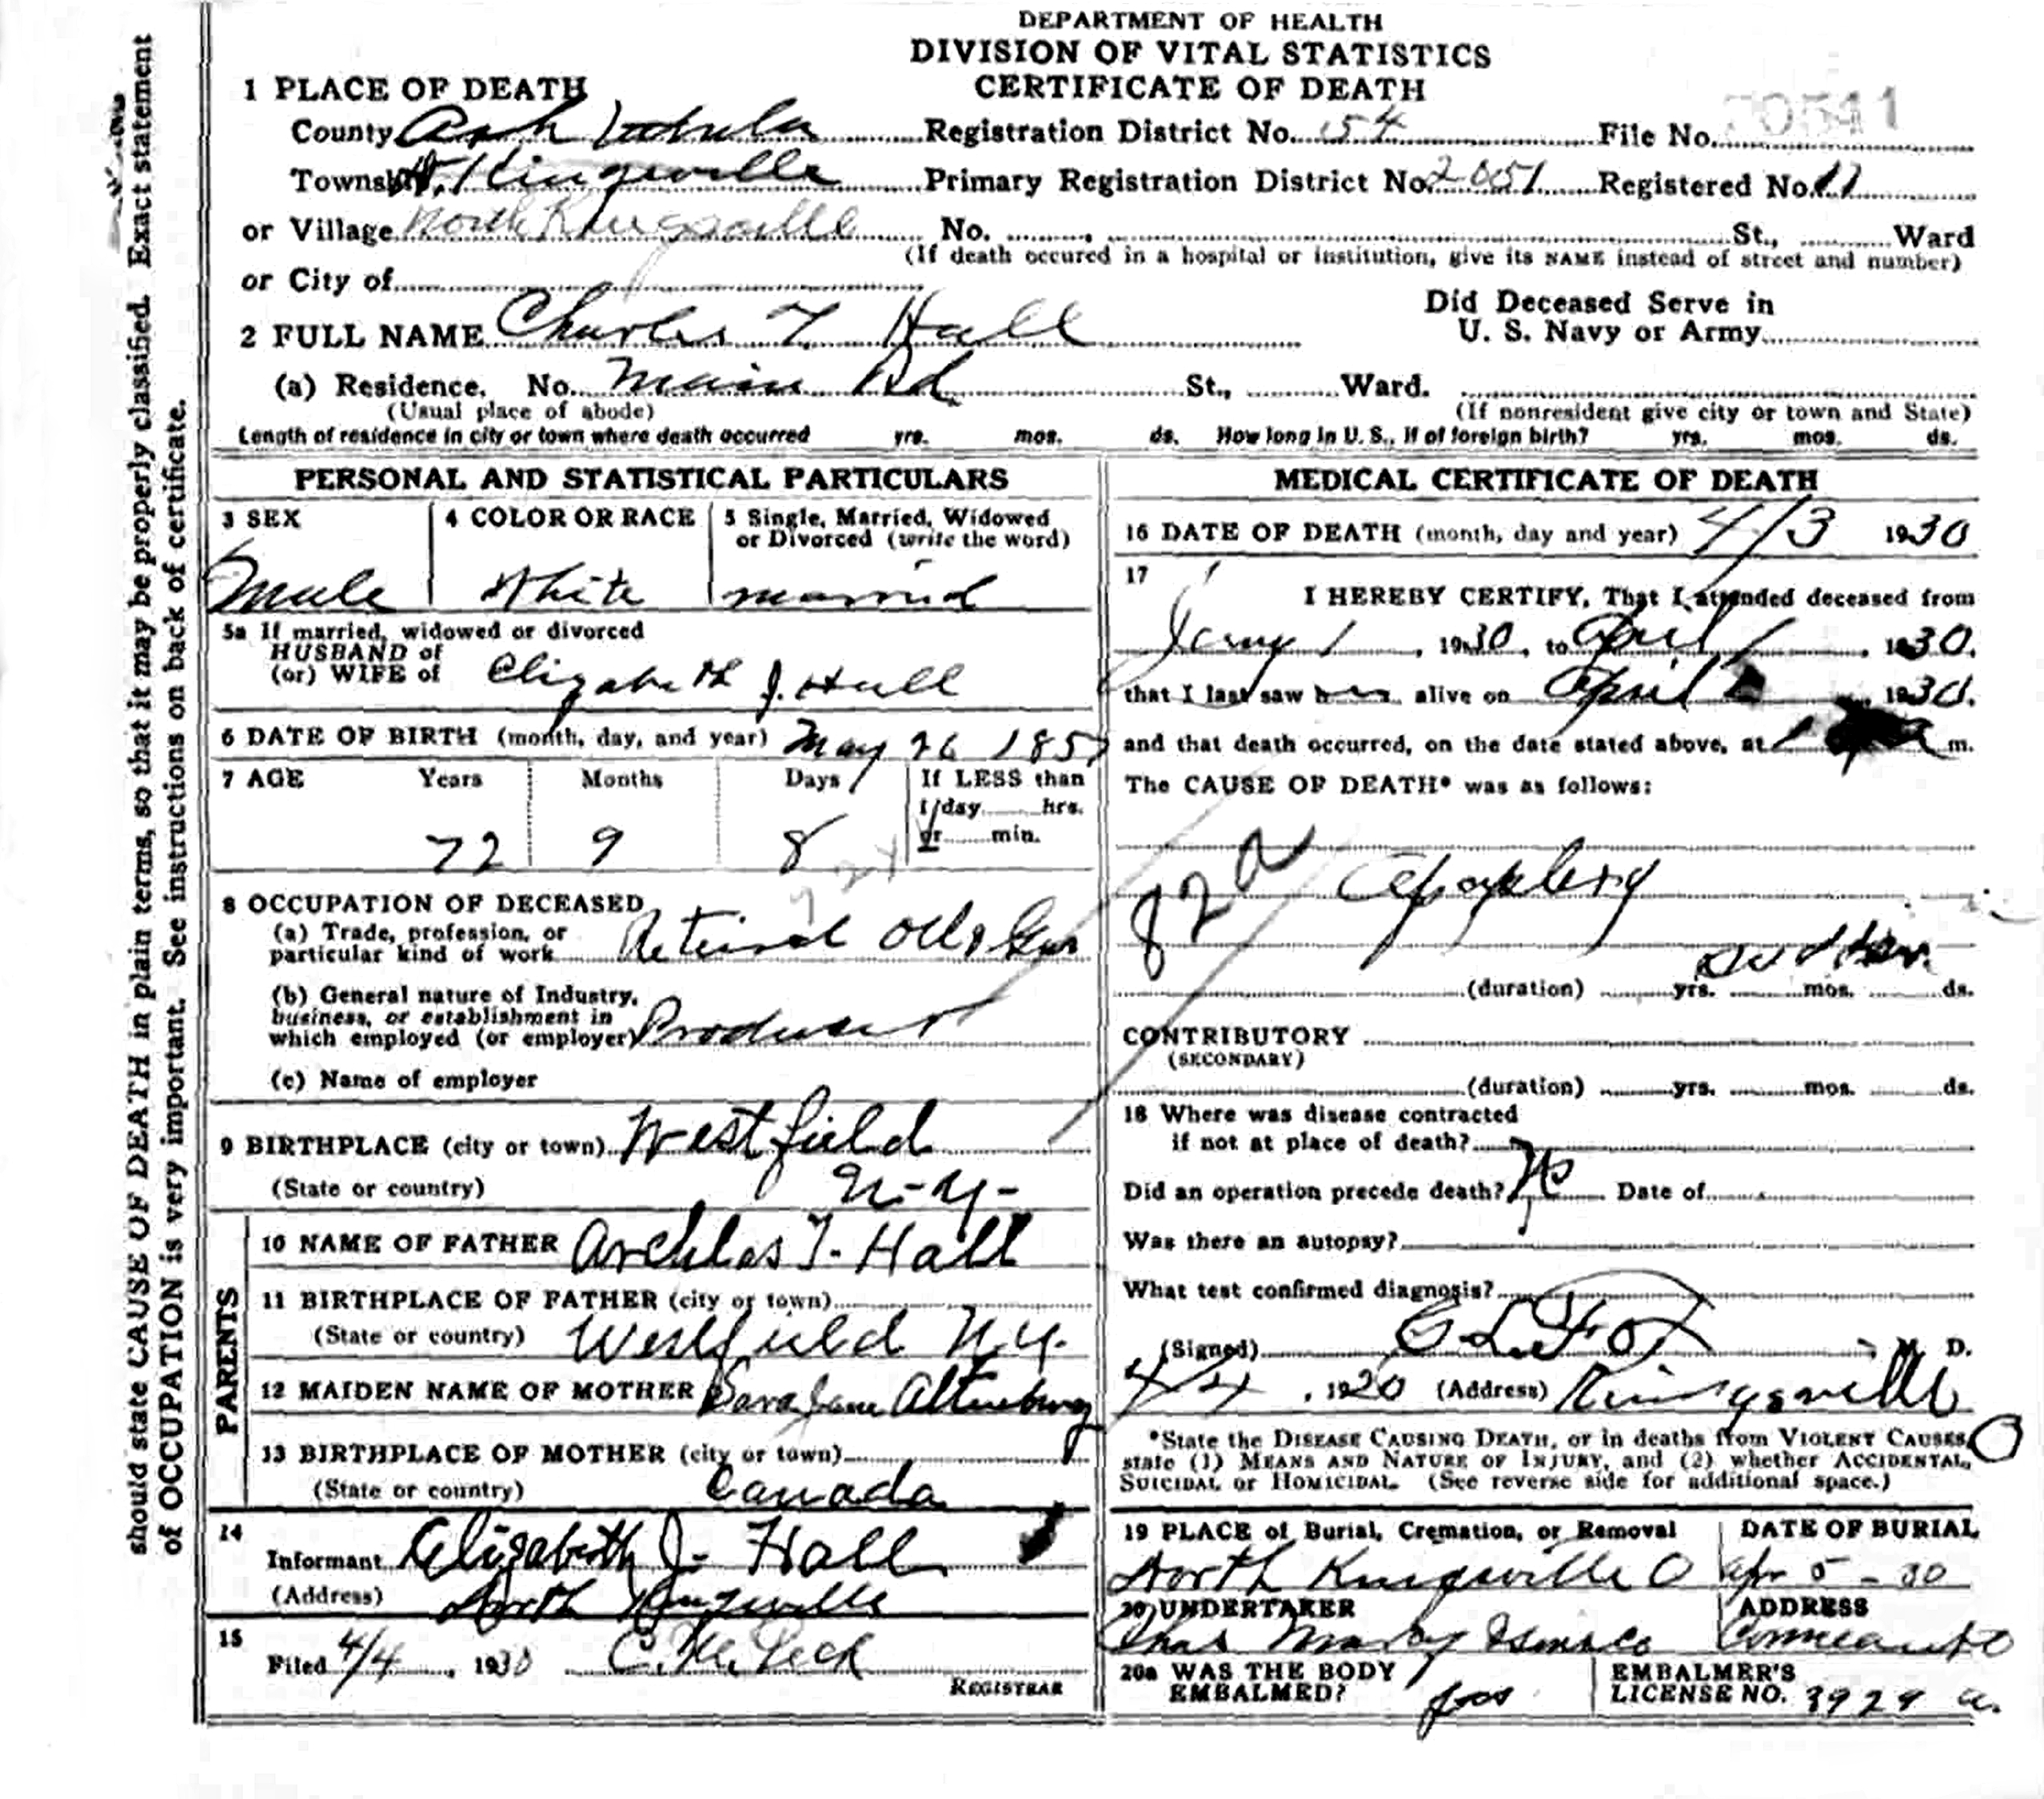 DEPARTMENT OF HEALTH
DIVISION OF VITAL STATISTICS
CERTIFICATE OF DEATH
1 PLACE OF DEATH
County Ashtabula Registration District No. 54 File No. 20541
Township N. Kingsville Primary Registration District No. 2051 Registered No. 17
or Village North Kingsville No. St., Ward
(If death occured in a hospital or institution, give its NAME instead of street and number)
or City of
Did Deceased Serve in
U. S. Navy or Army
2 FULL NAME Charles T. Hall
(a) Residence. No. Main Rd St., Ward.
(Usual place of abode) (If nonresident give city or town and State)
Length of residence in city or town where death occurred yrs. mos. ds. How long in U. S., if of foreign birth? yrs. mos. ds.
PERSONAL AND STATISTICAL PARTICULARS
3 SEX 4 COLOR OR RACE 5 Single, Married, Widowed
or Divorced (write the word)
Male White married
5a If married, widowed or divorced
HUSBAND of
(or) WIFE of Elizabeth J. Hall
6 DATE OF BIRTH (month, day, and year) May 26 1857
7 AGE Years Months Days If LESS than
1 day hrs.
or min.
72 9 8
8 OCCUPATION OF DECEASED
(a) Trade, profession, or
particular kind of work Retired Oil & Gas
(b) General nature of Industry,
business, or establishment in
which employed (or employer) Producer
(c) Name of employer
9 BIRTHPLACE (city or town) Westfield
(State or country) N-Y-
PARENTS
10 NAME OF FATHER T. Hall
11 BIRTHPLACE OF FATHER (city or town)
(State or country) Westfield N.Y.
12 MAIDEN NAME OF MOTHER Sara Jane Altenburg
13 BIRTHPLACE OF MOTHER (city or town)
(State or country) Canada
14
Informant Elizabeth J. Hall
(Address) North Kingsville
15
Filed 4/4, 1930 Peck
REGISTRAR
MEDICAL CERTIFICATE OF DEATH
16 DATE OF DEATH (month, day and year) 4/3 1930
17
I HEREBY CERTIFY, That I attended deceased from
Jany 1, 1930, to April 1, 1930,
that I last saw h alive on April 1, 1930,
and that death occurred, on the date stated above, at m.
The CAUSE OF DEATH* was as follows:
82a Apoplexy
sudden
(duration) yrs. mos. ds.
CONTRIBUTORY
(SECONDARY)
(duration) yrs. mos. ds.
18 Where was disease contracted
if not at place of death?
Did an operation precede death? No Date of
Was there an autopsy?
What test confirmed diagnosis?
(Signed) Fox, M. D.
4/4, 1930 (Address) Kingsville O
*State the DISEASE CAUSING DEATH, or in deaths from VIOLENT CAUSES,
state (1) MEANS AND NATURE OF INJURY, and (2) whether ACCIDENTAL,
SUICIDAL or HOMICIDAL. (See reverse side for additional space.)
19 PLACE of Burial, Cremation, or Removal DATE OF BURIAL
North Kingsville O Apr 5 - 30
20 UNDERTAKER ADDRESS
Chas Conneaut O
20a WAS THE BODY
EMBALMED? yes
EMBALMER'S
LICENSE NO. 3929 a.
should state CAUSE OF DEATH in plain terms, so that it may be properly classified. Exact statement
of OCCUPATION is very important. See instructions on back of certificate.